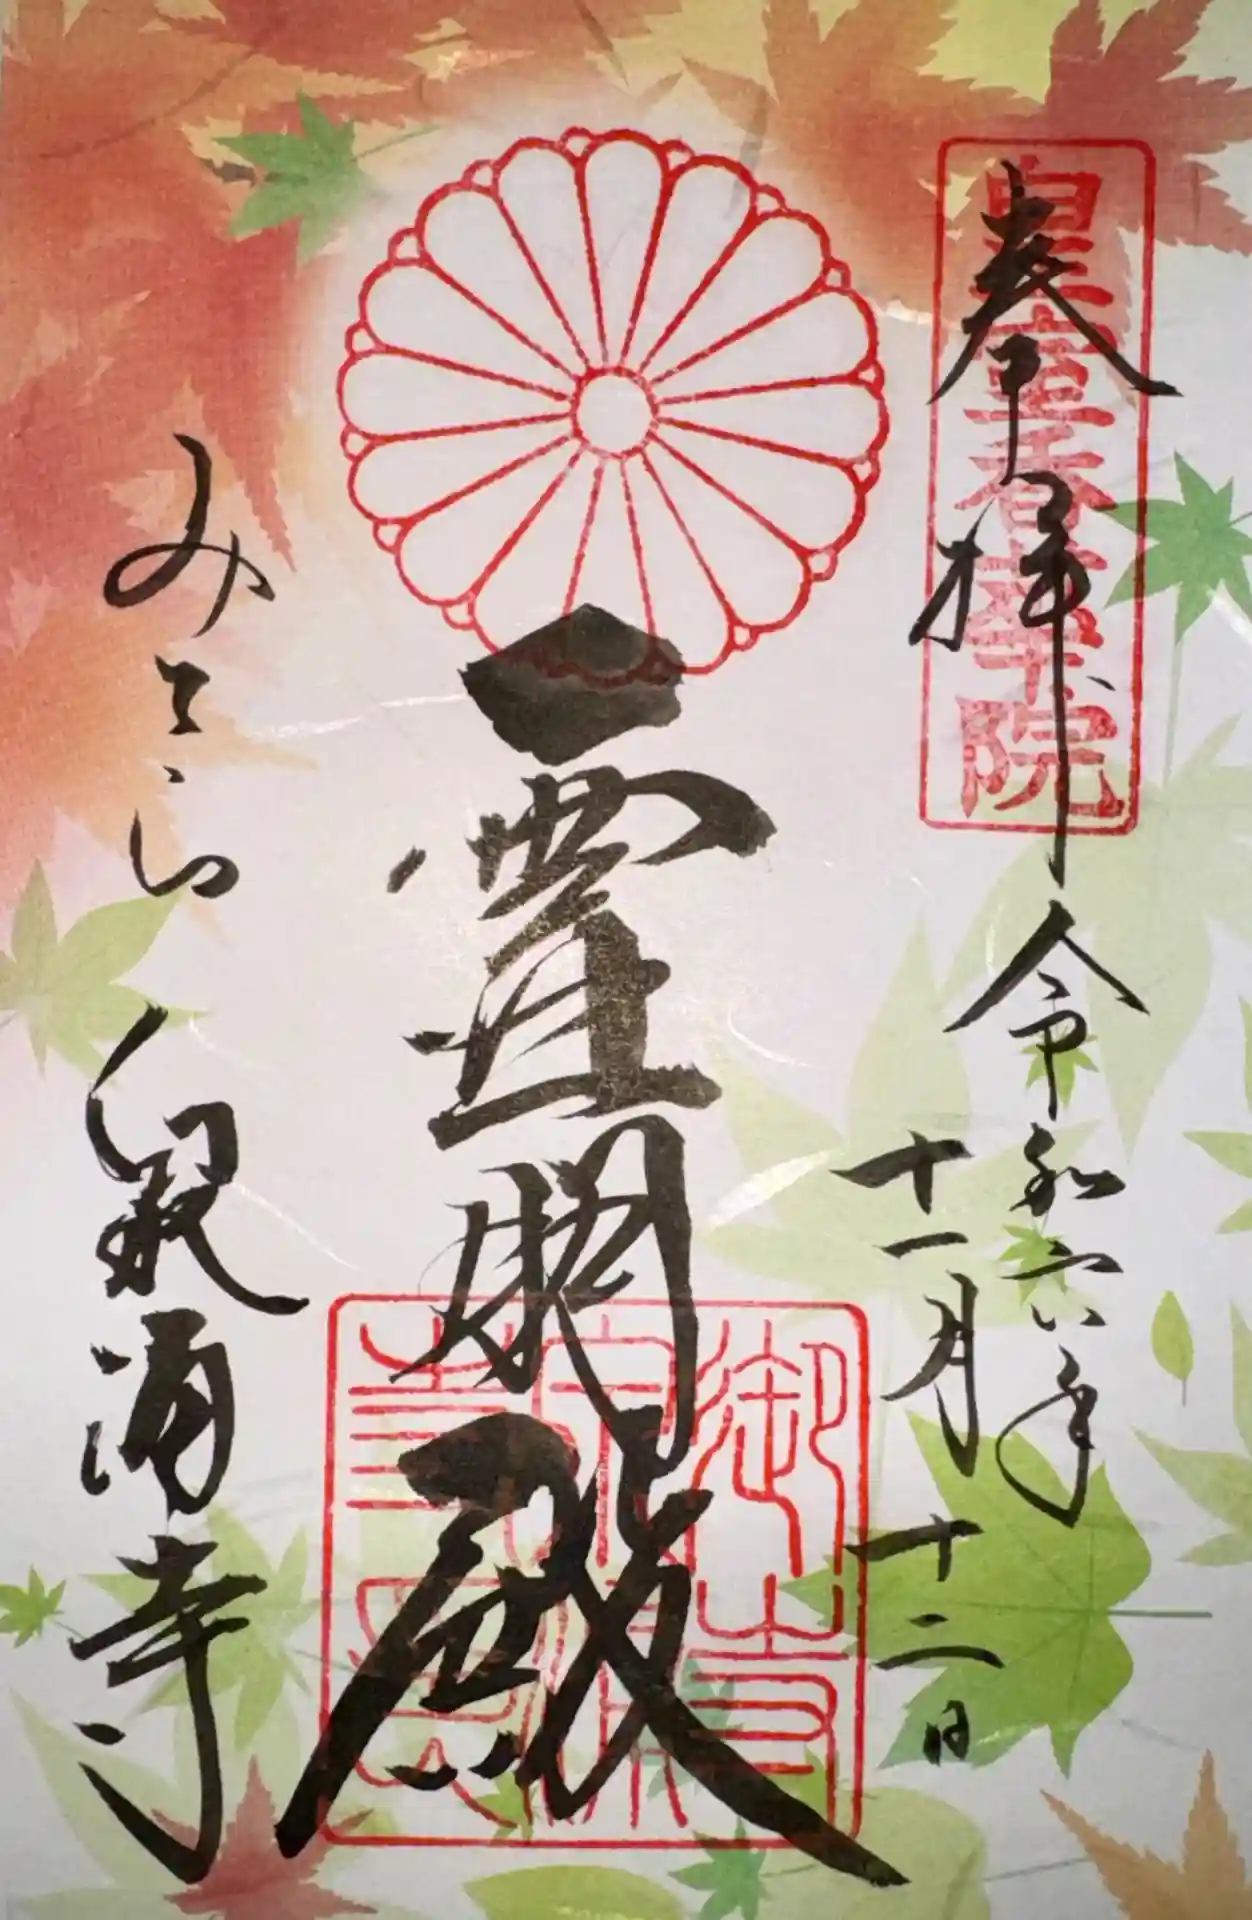 奉拝
皇室香華院
令和六年
十一月十二日
霊明殿
みてら
泉涌寺